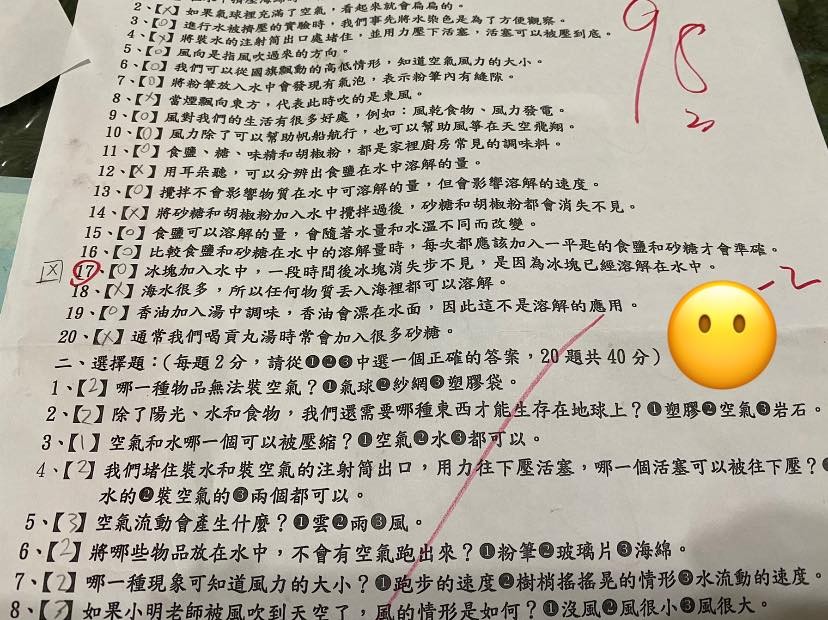 2、【X】如果氣球裡充滿了空氣，看起來就會扁扁的。
98
3、【O】進行水被擠壓的實驗時，我們事先將水染色是為了方便觀察。
4、【X】將裝水的注射筒出口處堵住，並用力壓下活塞，活塞可以被壓到底。
5、【O】風向是指風吹過來的方向。
6、【O】我們可以從國旗飄動的高低情形，知道空氣風力的大小。
7、【O】將粉筆放入水中會發現有氣泡，表示粉筆內有縫隙。
8、【X】當煙飄向東方，代表此時吹的是東風。
9、【O】風對我們的生活有很多好處，例如：風乾食物、風力發電。
10、【O】風力除了可以幫助帆船航行，也可以幫助風箏在天空飛翔。
11、【O】食鹽、糖、味精和胡椒粉，都是家裡廚房常見的調味料。
12、【X】用耳朵聽，可以分辨出食鹽在水中溶解的量。
13、【O】攪拌不會影響物質在水中可溶解的量，但會影響溶解的速度。
14、【X】將砂糖和胡椒粉加入水中攪拌過後，砂糖和胡椒粉都會消失不見。
15、【O】食鹽可以溶解的量，會隨著水量和水溫不同而改變。
16、【O】比較食鹽和砂糖在水中的溶解量時，每次都應該加入一平匙的食鹽和砂糖才會準確。
X 17、【O】冰塊加入水中，一段時間後冰塊消失步不見，是因為冰塊已經溶解在水中。
-2
18、【X】海水很多，所以任何物質丟入海裡都可以溶解。
19、【O】香油加入湯中調味，香油會漂在水面，因此這不是溶解的應用。
20、【X】通常我們喝貢丸湯時常會加入很多砂糖。
二、選擇題：(每題2分，請從❶❷❸中選一個正確的答案，20題共40分)
1、【2】哪一種物品無法裝空氣？❶氣球❷紗網❸塑膠袋。
2、【2】除了陽光、水和食物，我們還需要哪種東西才能生存在地球上？❶塑膠❷空氣❸岩石。
3、【1】空氣和水哪一個可以被壓縮？❶空氣❷水❸都可以。
4、【2】我們堵住裝水和裝空氣的注射筒出口，用力往下壓活塞，哪一個活塞可以被往下壓？❶
水的❷裝空氣的❸兩個都可以。
5、【3】空氣流動會產生什麼？❶雲❷雨❸風。
6、【2】將哪些物品放在水中，不會有空氣跑出來？❶粉筆❷玻璃片❸海綿。
7、【2】哪一種現象可知道風力的大小？❶跑步的速度❷樹梢搖搖晃的情形❸水流動的速度。
8、【3】如果小明老師被風吹到天空了，風的情形是如何？❶沒風❷風很小❸風很大。